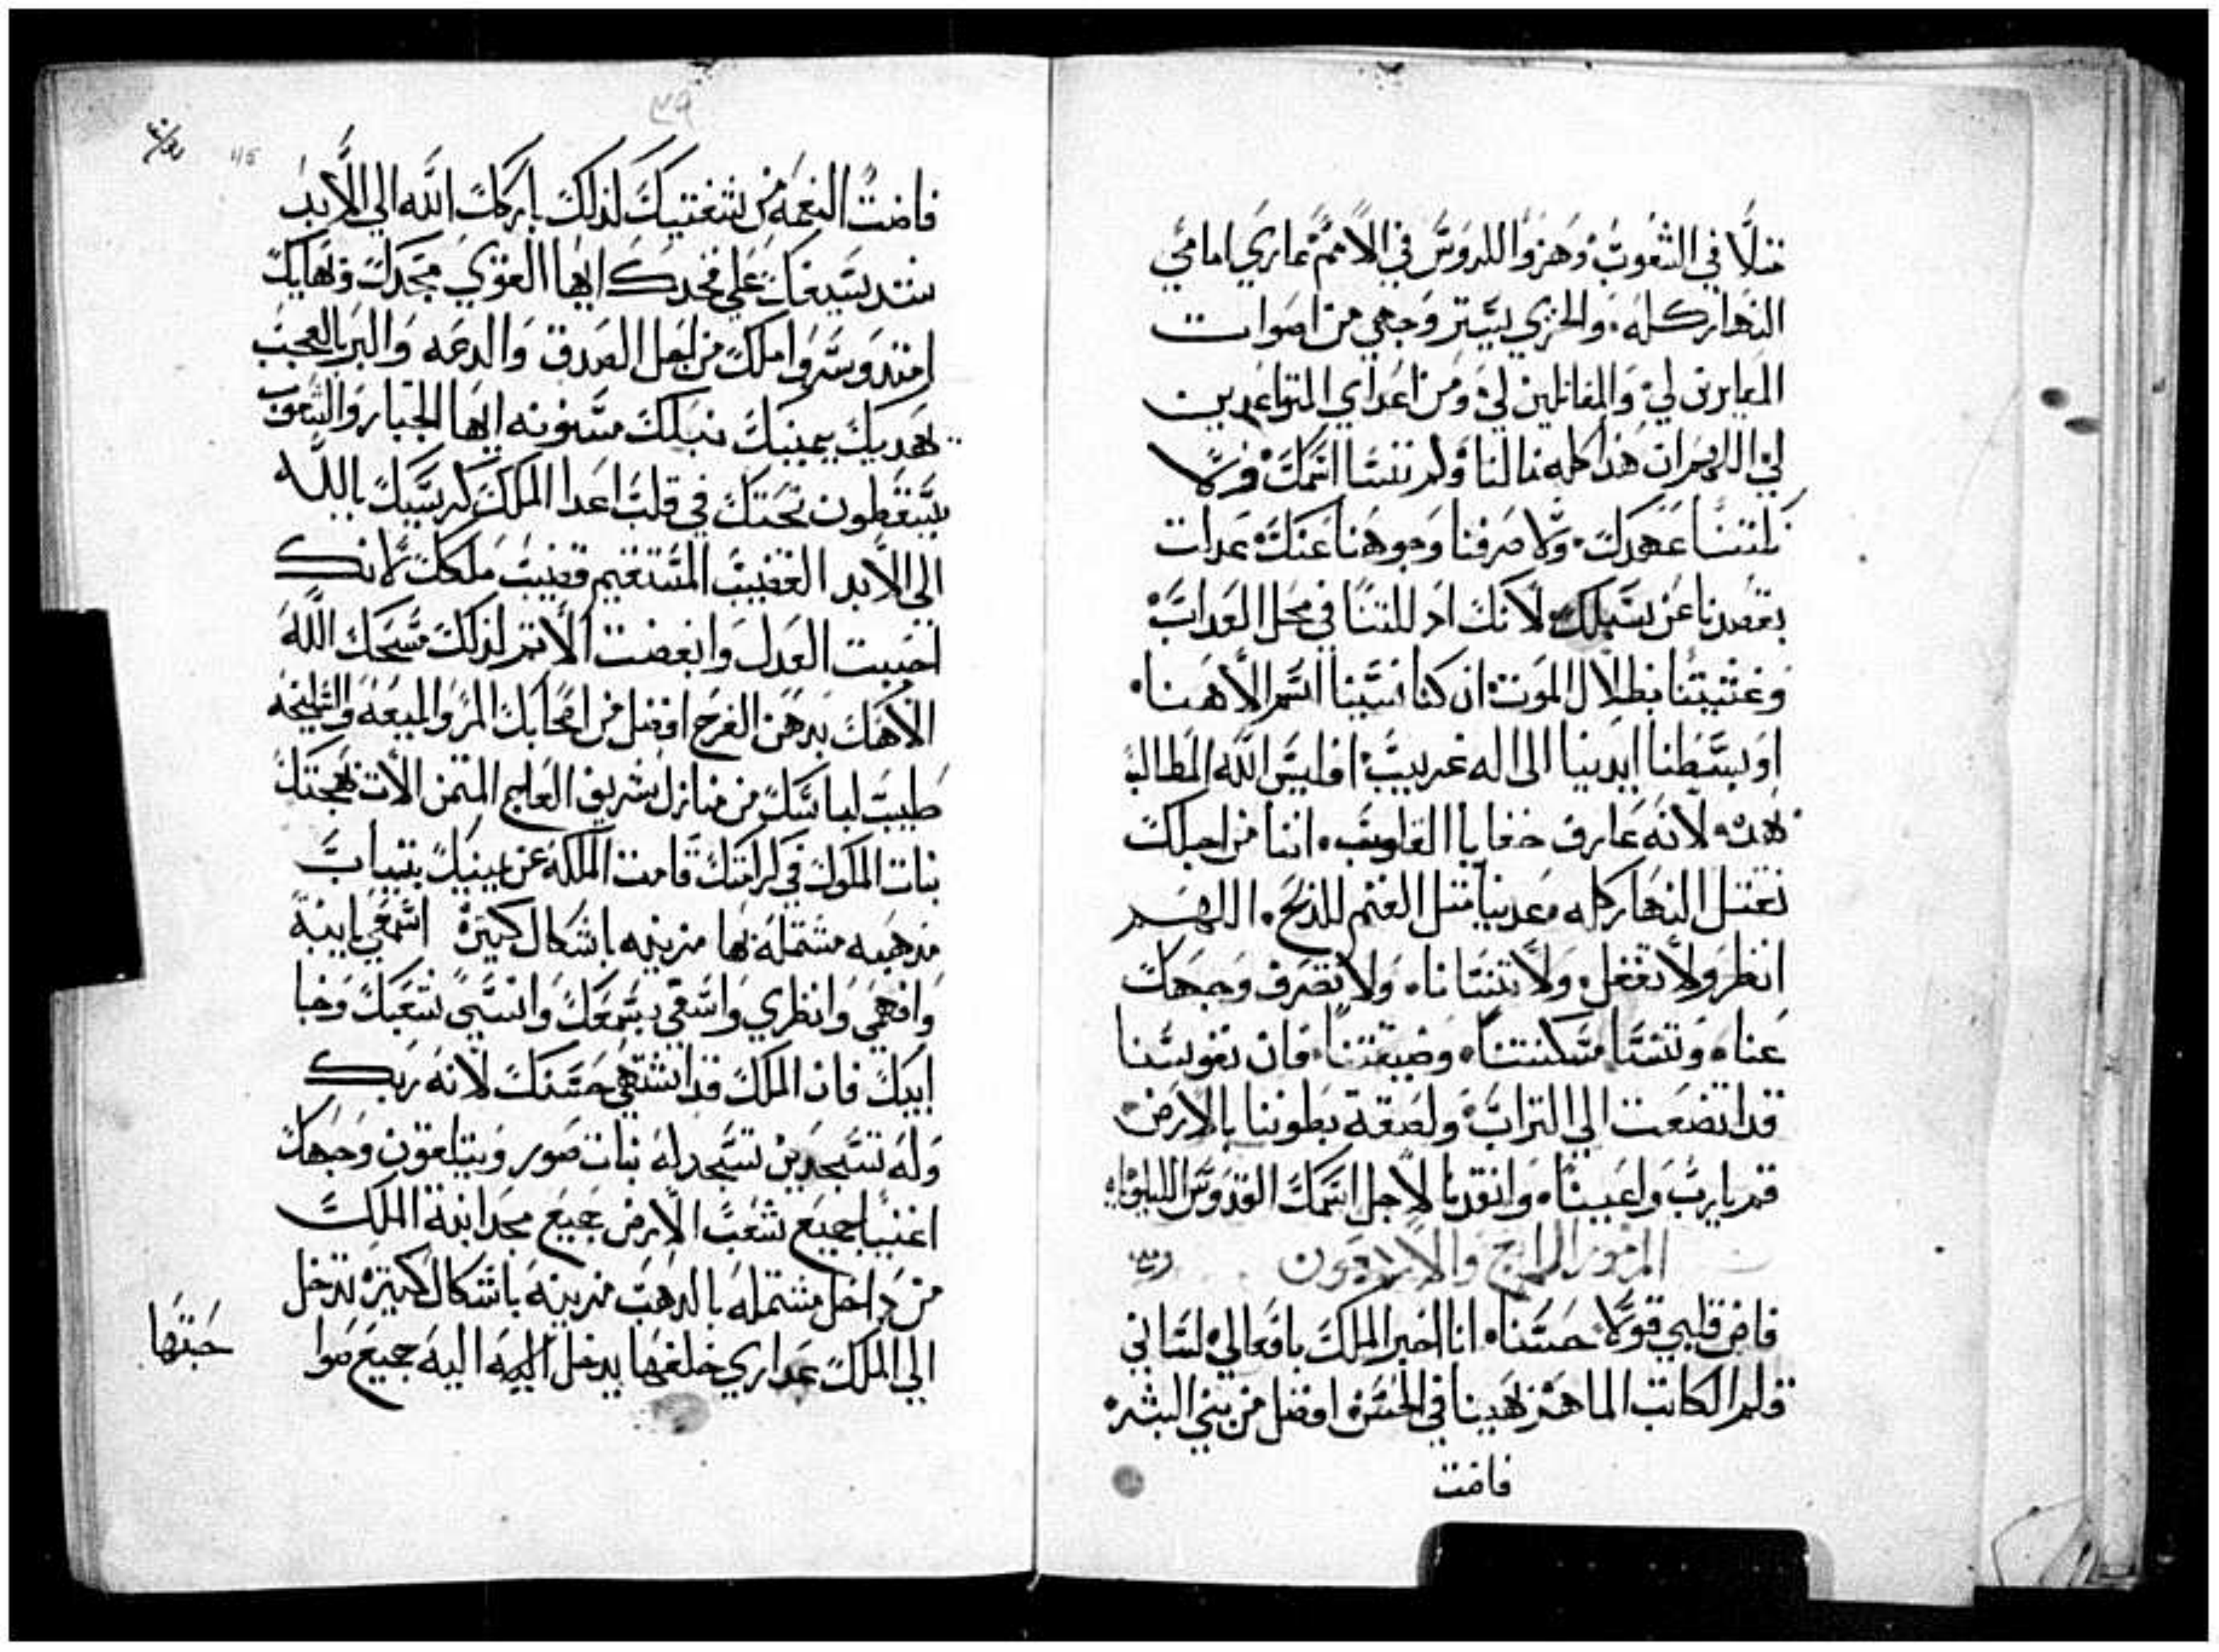 مثلًا في الشعوب وهزوا للروس في الامم عاري امامي
النهار كله والخزي يستر وجهي من اصوات
المعايرين لي والمقاتلين لي ومن اعداي المتواعدين
لي اللهم ان هذا كله نالنا ولم ننسا اسمك ولا
نكثنا عهدك ولا صرفنا وجوهنا عنك عدلت
بقصدنا عن سبيلك لانك اذللتنا في محل العداب
وغشيتنا بظلال الموت ان كنا نسينا اسم الاهنا
او بسطنا ايدينا الى اله غريب افليس الله المطالب
بهده لانه عارف خفايا القلوب اننا من اجلك
نقتل النهار كله معدنيا مثل الغنم للدبح اللهم
انظر ولا تغفل ولا تنسانا ولا تصرف وجهك
عنا وتنسا مسكنتنا وضيقتنا فان نفوسنا
قد اتضعت الي التراب ولصقة بطوننا بالارض
قم يارب واعيننا وانقدنا لاجل اسمك القدوس الليلويا
المزمور الرابع والاربعون
فاض قلبي قولا حسنا انا اخبر الملك بافعالي لساني
قلم الكاتب الماهر بهيا في الحسن افضل من بني البشر
فاضت
٣٩
115
فاضت النعمه من شفتيك لذلك باركك الله الي الابد
شد سيفك علي فخدك ايها القوي بمجدك وبهايك
امتد وسر واملك من اجل الصدق والدعه والبر بالعجب
تهديك يمينك نبلك مسنونه ايها الجبار والشعوب
يسقطون تحتك في قلب اعدا الملك كرسيك يا الله
الي الابد القضيب المستقيم قضيب ملكك لانك
احببت العدل وابغضت الاتم لذلك مسحك الله
الاهك بدهن الفرح افضل من اصحابك المر والميعه والسليخه
طيب لباسك من منازل شريف العاج المتمن الات بهجتك
بنات الملوك في كرامتك قامت الملكة عن يمينك بتياب
مدهبه مشتملة بها مزينه باشكال كتيرة اسمعي يا ابنة
وافهمي وانظري واسقي بسمعك وانسي شعبك وخبا
ابيك فان الملك قد اشتهي حسنك لانه ربك
وله تسجدين تسجد له بنات صور ويتلقون وجهك
اغنيا جميع شعب الارض جميع مجد ابنة الملك
من داخل مشتمله بالدهب مزينه باشكال كتيرة تدخل
الي الملك عداري خلفها يدخل اليه اليه جميع صوا
حبتها